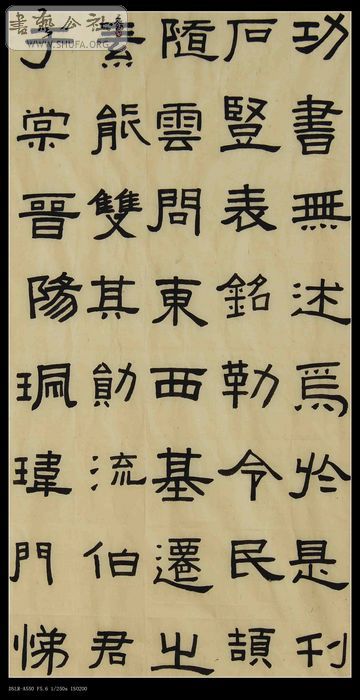 功書無述焉於是刊
石豎表銘勒令民頡
隨雲問東西基遷之
素能雙其勛流伯君
于棠晉陽珮瑋門悌
書法公社
WWW.SHUFA.ORG
DSLR-A550 F5.6 1/250s ISO200